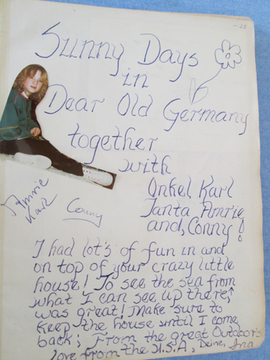 Sunny Days
in
Dear Old Germany
together
with
Onkel Karl
Tanta Amrie
and, Conny!
Amrie
Karl
Conny
I had lot's of fun in and
on top of your crazy little
house! To see the sea from
what I can see up there,
was great! Make sure to
keep the house until I come
back; From the great Outdoors
love from the U.S.A,